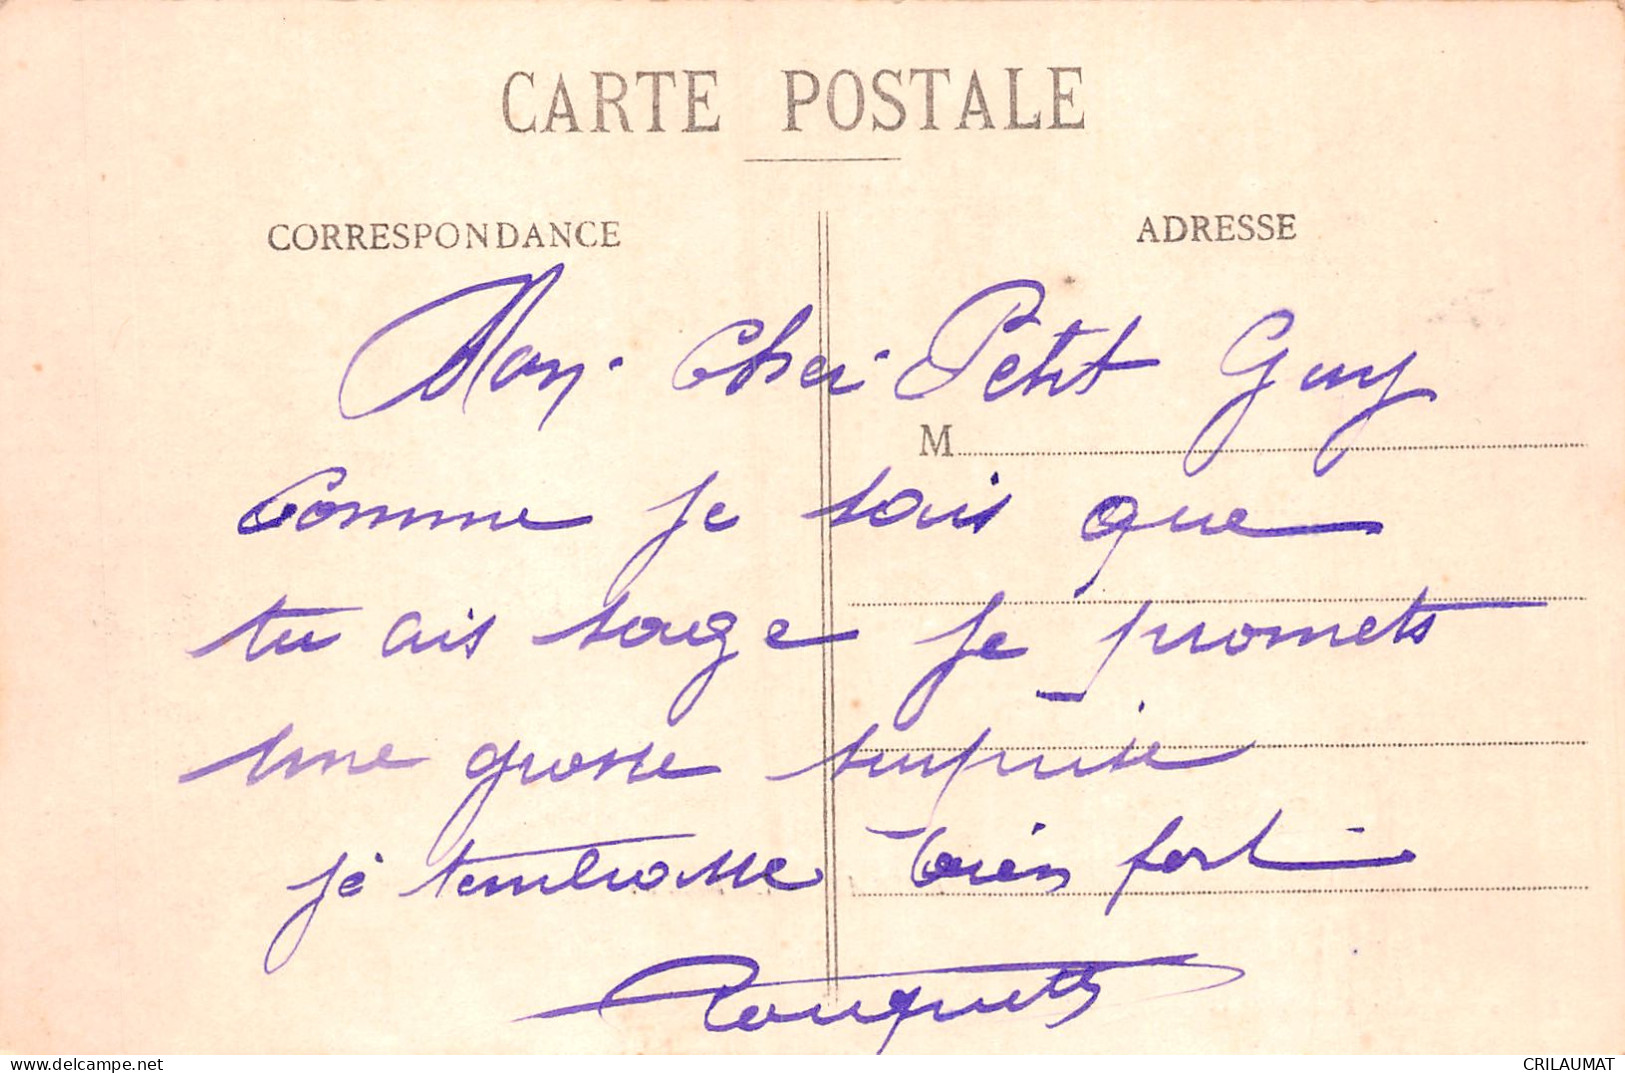 CARTE POSTALE
CORRESPONDANCE
ADRESSE
Mon Cher Petit Guy
M
Comme je sais que
tu ais sage je promets
une grosse surprise
je tembrasse bien fort
delcampe.net
CRILAUMAT